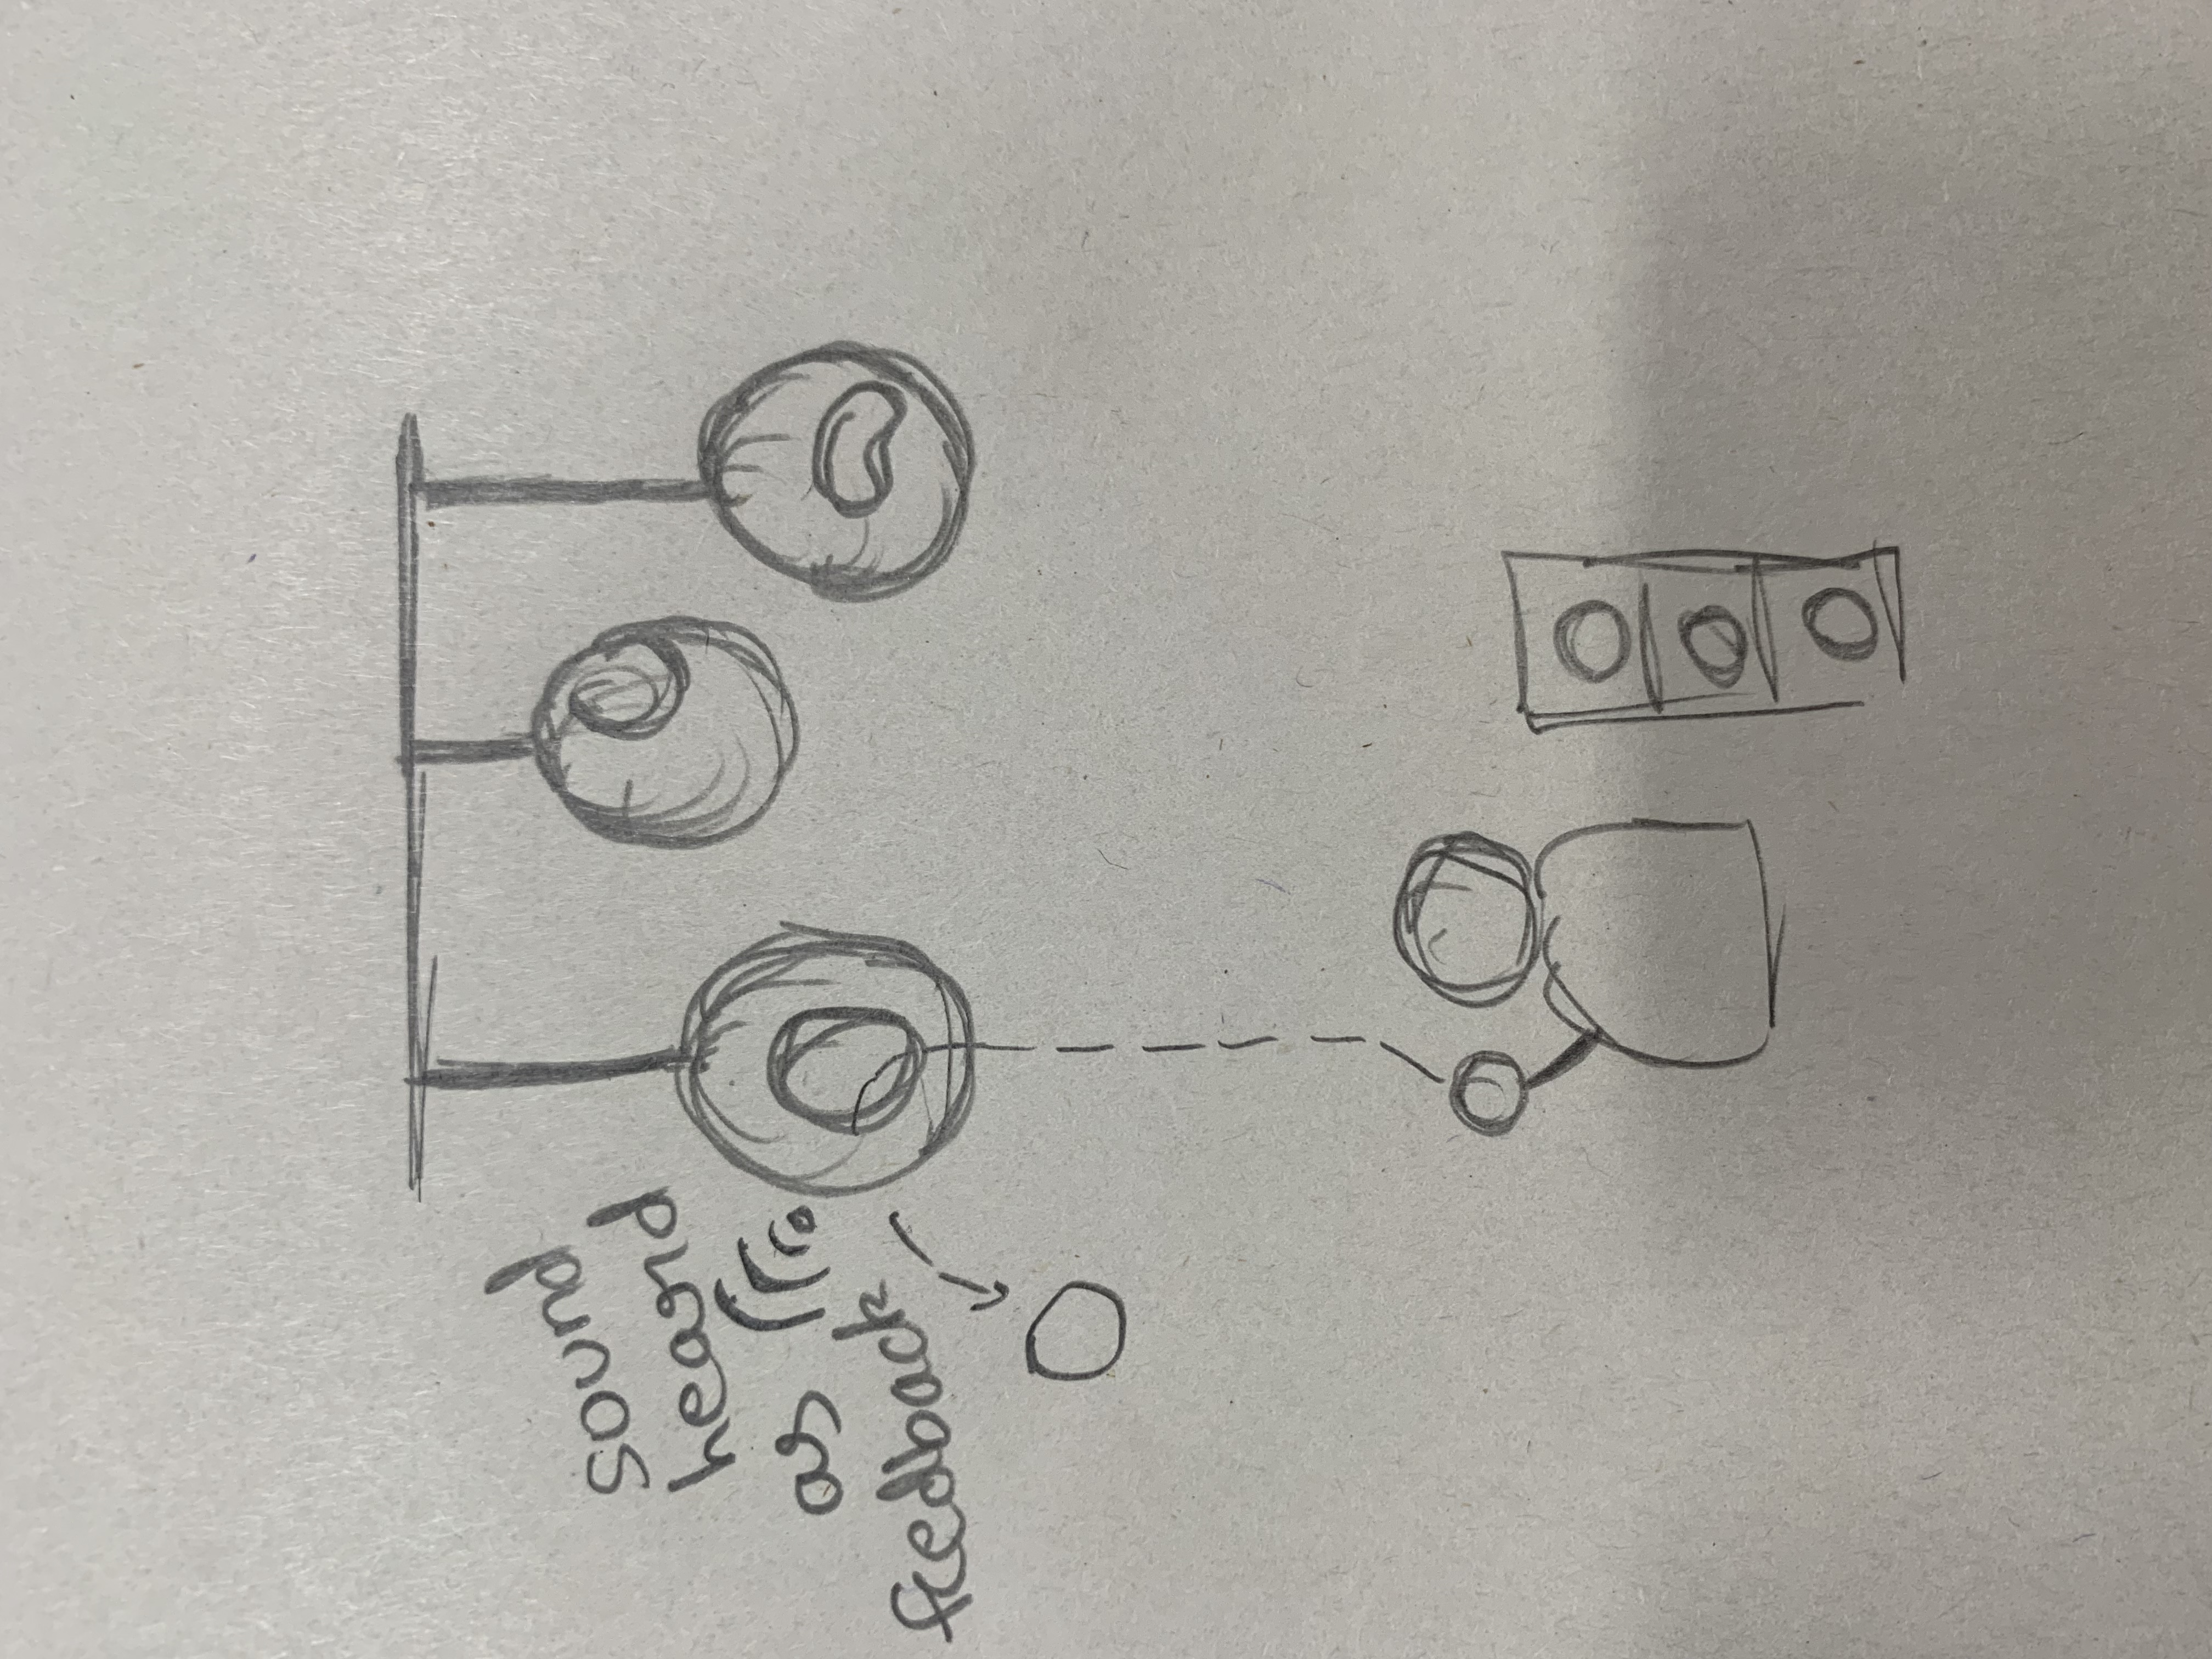 sound
heard
as
feedback